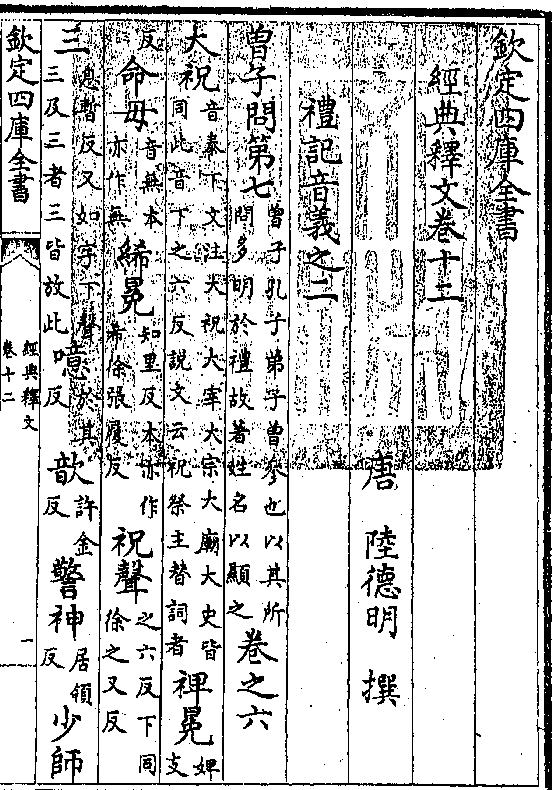 欽定四庫全書
經典釋文卷十二
唐 陸德明 撰
禮記音義之二
曾子問第七曾子孔子弟子曾參也以其所問多明於禮故著姓名以顯之卷之六
大祝音泰下文注大祝大宰大宗大廟大史皆同此音下之六反說文云祝祭主替詞者裨冕婢支
反命毋音無本亦作無絺冕知里反本亦作希徐張履反祝聲之六反下同徐之又反
三息暫反又如字下聲三及三者三皆故此噫於其反歆許金反警神居領反少師
欽定四庫全書
經典釋文
卷十二
一